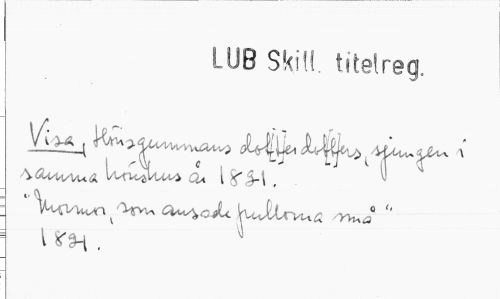 LUB Skill. titelreg.
Visa, Hönsgummans do[tt]erdo[tt]ers, sjungen i
samma hönshus år 1821.
"Mormor, som ansade pullorna små"
1821.